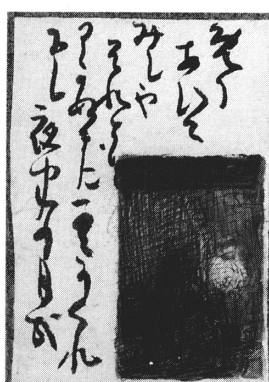 めくり
あひて
みしや
それとも
わかぬまに雲かくれ
にし夜半の月哉